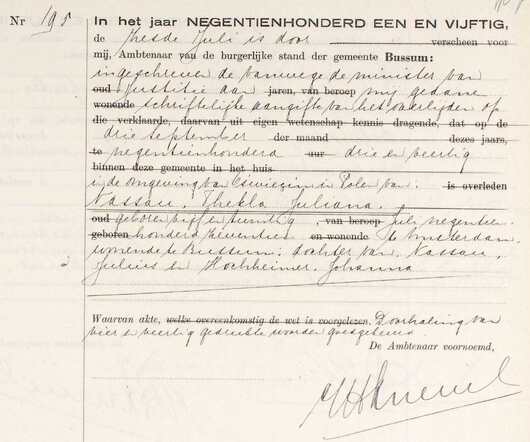 Nr 195
In het jaar NEGENTIENHONDERD EEN EN VIJFTIG,
de zesde Juli is door verscheen voor
mij, Ambtenaar van de burgerlijke stand der gemeente Bussum:
ingeschreven de vanwege de minister van
oud Justitie aan jaren, van beroep mij gedane
wonende schriftelijke aangifte van het overlijden op
die verklaarde, daarvan uit eigen wetenschap kennis dragende, dat op de
drie september der maand dezes jaars,
te negentienhonderd uur drie en veertig
binnen deze gemeente in het huis
in de omgeving van Oswiecim in Polen van: is overleden
Nassau, Thekla Juliana.
oud geboren vijf en twintig , van beroep Juli negentien-
geboren honderd zeventien en wonende te Amsterdam,
wonende te Bussum, dochter van Nassau,
Julius en Hochheimer, Johanna
Waarvan akte, welke overeenkomstig de wet is voorgelezen. Doorhaling van
vier en veertig gedrukte woorden goedgekeurd
De Ambtenaar voornoemd,